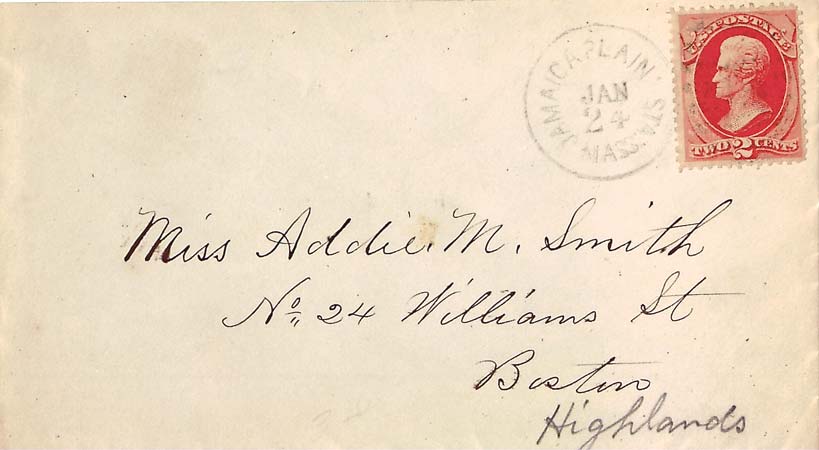 JAMAICA PLAIN STA.
JAN
24
MASS.
U.S. POSTAGE
TWO 2 CENTS
Miss Addie. M. Smith
No. 24 Williams St
Boston
Highlands